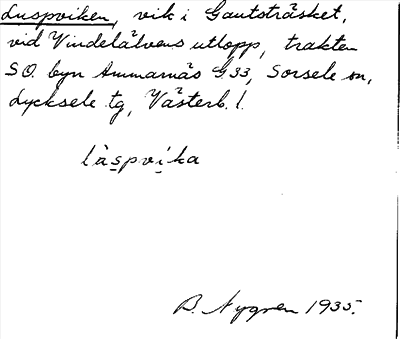 Luspviken, vik i Gautsträsket,
vid Vindelälvens utlopp, trakten
SO. byn Ammarnäs G33, Sorsele sn,
Lycksele tg, Västerb. l.
làspvika
B. Nygren 1935.